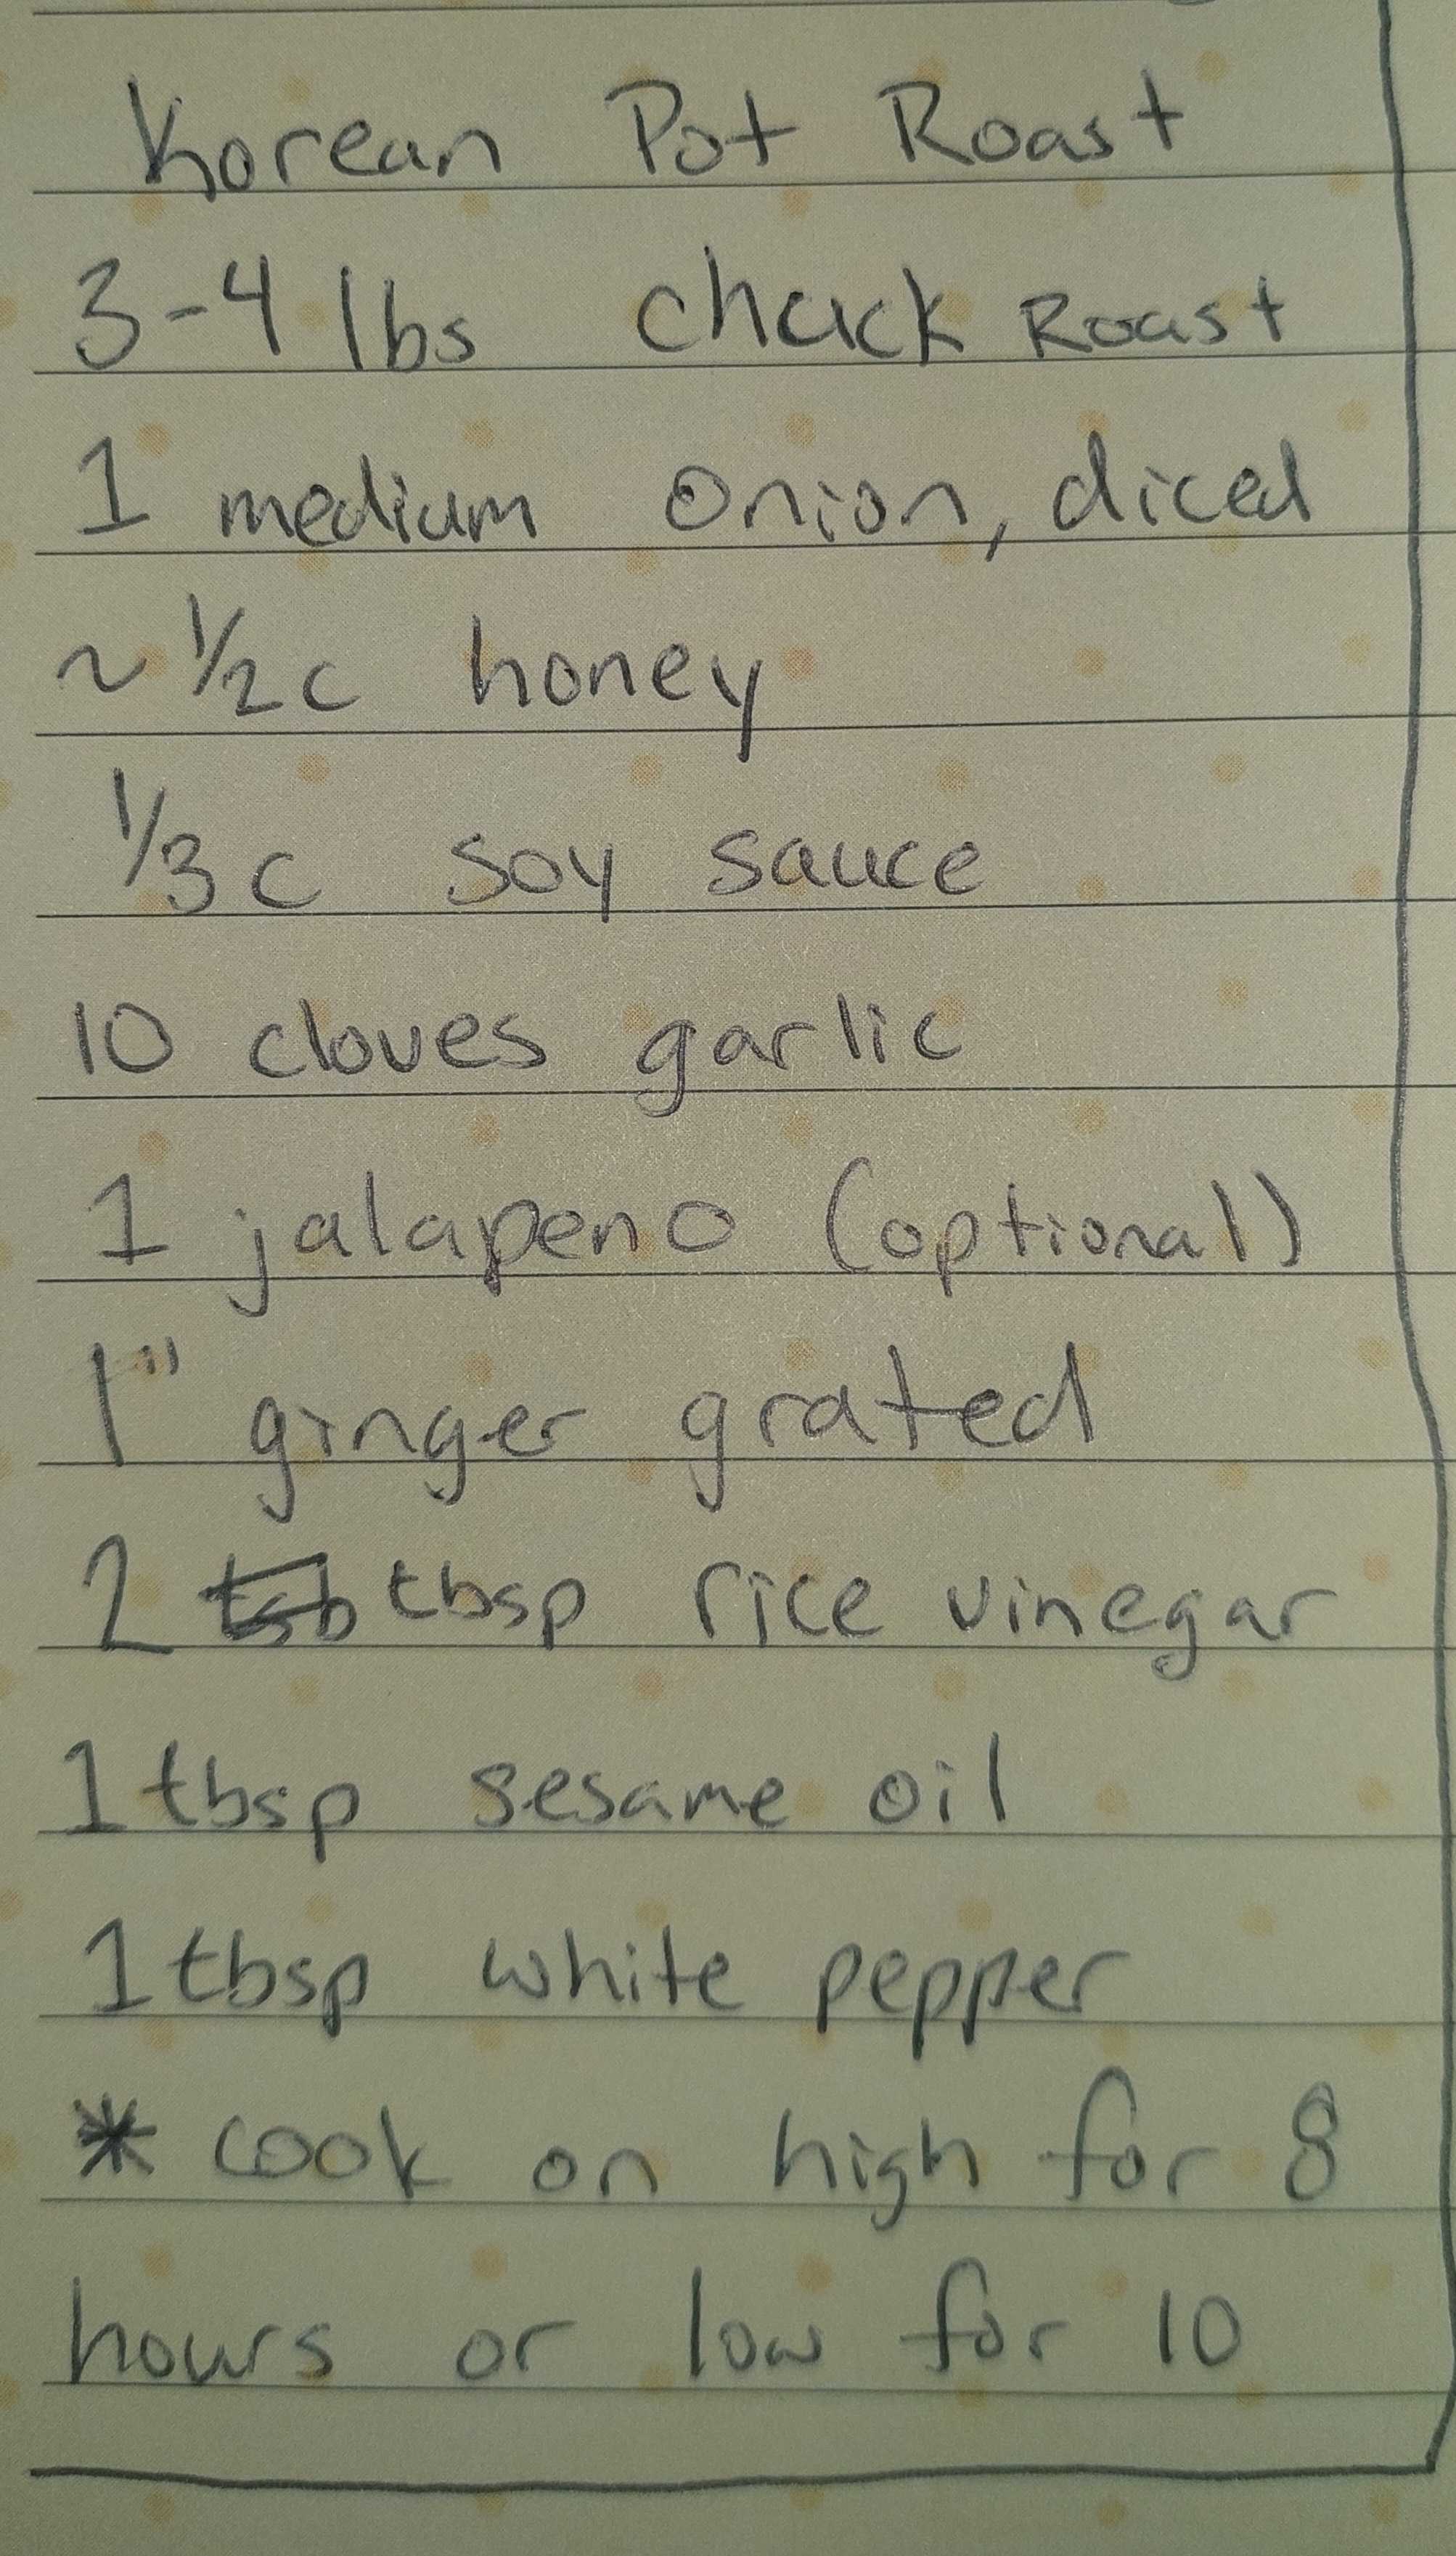 Korean Pot Roast
3-4 lbs chuck Roast
1 medium onion, diced
~ 1/2 c honey
1/3 c soy sauce
10 cloves garlic
1 jalapeno (optional)
1" ginger grated
2 tbsp rice vinegar
1 tbsp sesame oil
1 tbsp white pepper
* cook on high for 8
hours or low for 10